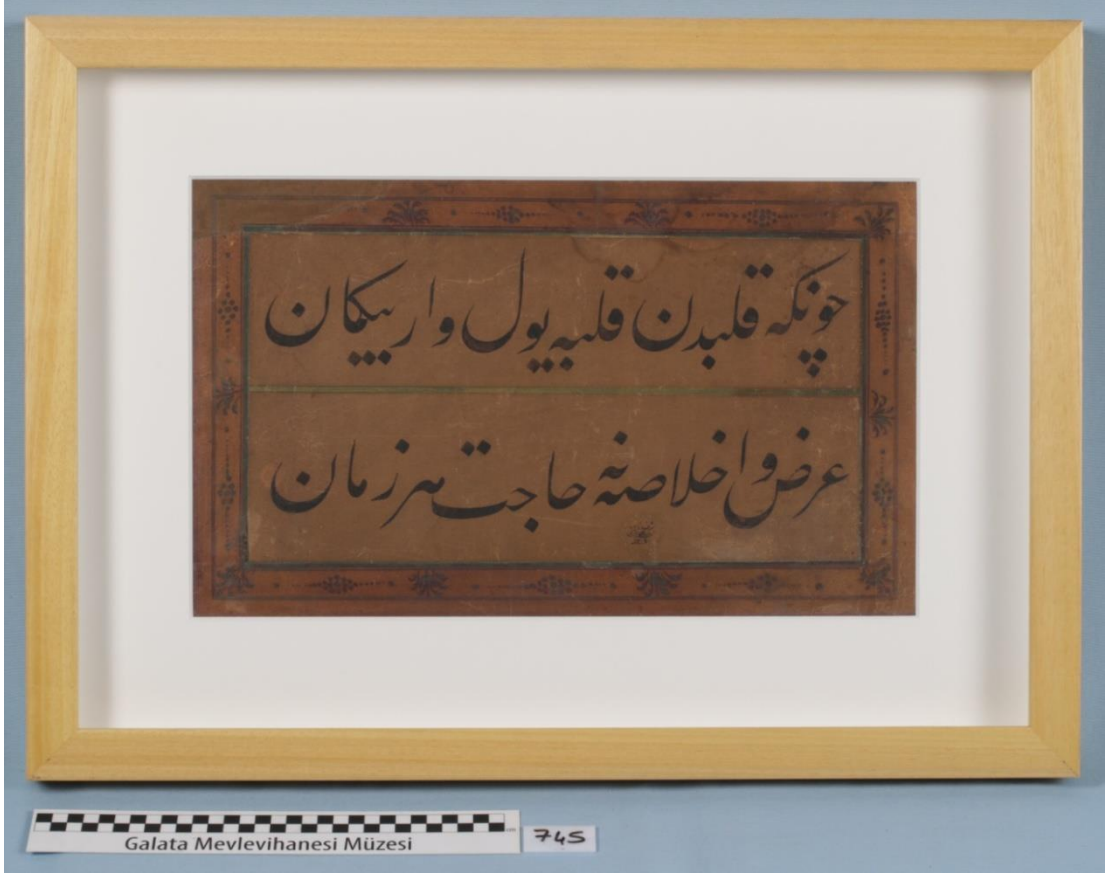 چونکه قلبدن قلبه یول وار بیکمان
عرض و اخلاصنه حاجت هر زمان
Galata Mevlevihanesi Müzesi
745